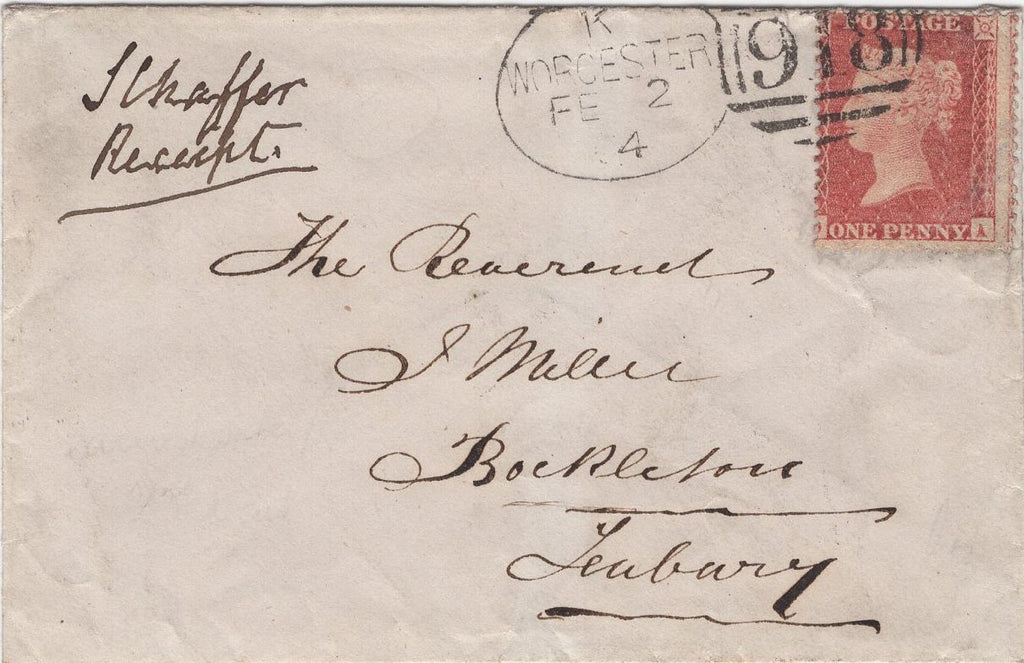 K
WORCESTER
FE 2
4
918
POSTAGE
ONE PENNY A
Receipt.
The Reverend
J Miller
Bockleton
Tenbury